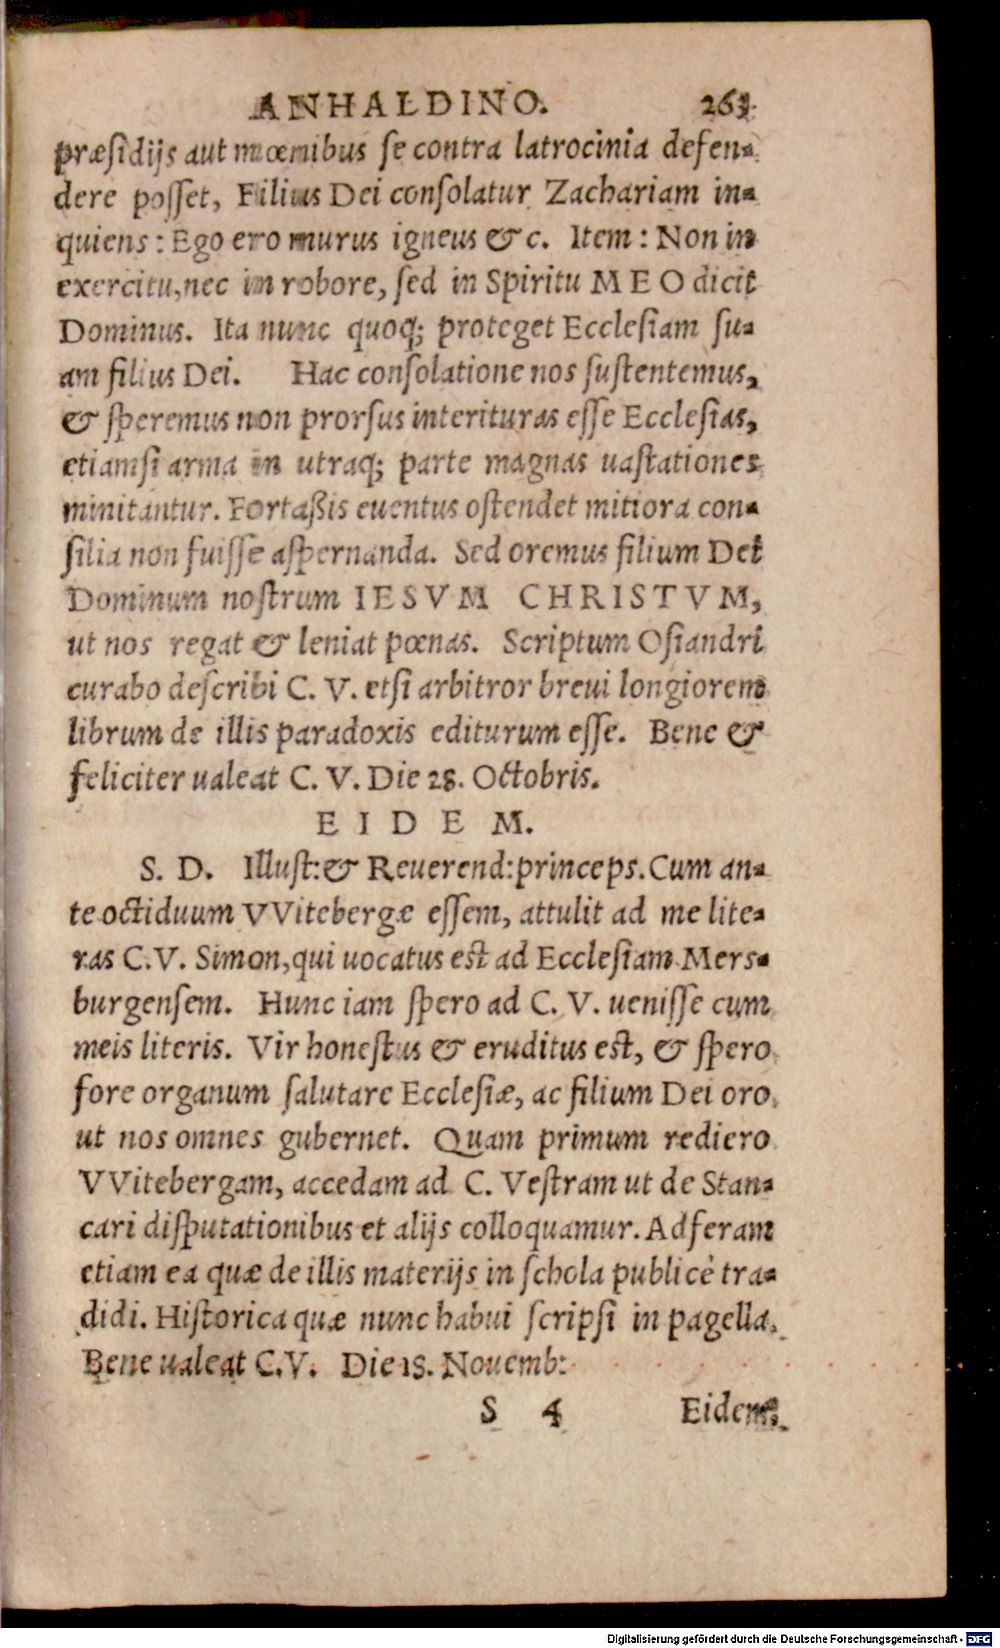 ANHALDINO. 263
præſidijs aut mœnibus ſe contra latrocinia defen-
dere poſſet, Filius Dei conſolatur Zachariam in-
quiens: Ego ero murus igneus & c. Item: Non in
exercitu, nec in robore, ſed in Spiritu MEO dicit
Dominus. Ita nunc quoq; proteget Eccleſiam ſu-
am filius Dei. Hac conſolatione nos ſuſtentemus,
& ſperemus non prorſus interituras eſſe Eccleſias,
etiamſi arma in utraq; parte magnas uaſtationes
minitantur. Fortaßis euentus oſtendet mitiora con-
ſilia non fuiſſe aſpernanda. Sed oremus filium Dei
Dominum noſtrum IESVM CHRISTVM,
ut nos regat & leniat pœnas. Scriptum Oſiandri
curabo deſcribi C. V. etſi arbitror breui longiorem
librum de illis paradoxis editurum eſſe. Bene &
feliciter ualeat C. V. Die 28. Octobris.
EIDEM.
S. D. Illuſt: & Reuerend: princeps. Cum an-
te octiduum VVitebergæ eſſem, attulit ad me lite-
ras C.V. Simon, qui uocatus eſt ad Eccleſiam Mers-
burgenſem. Hunc iam ſpero ad C. V. ueniſſe cum
meis literis. Vir honeſtus & eruditus eſt, & ſpero
fore organum ſalutare Eccleſiæ, ac filium Dei oro,
ut nos omnes gubernet. Quam primum rediero
VVitebergam, accedam ad C. Veſtram ut de Stan-
cari diſputationibus et alijs colloquamur. Adferam
etiam ea quæ de illis materijs in ſchola publicè tra-
didi. Hiſtorica quæ nunc habui ſcripſi in pagella.
Bene ualeat C.V. Die 18. Nouemb:
S 4 Eidem
Digitalisierung gefördert durch die Deutsche Forschungsgemeinschaft - DFG